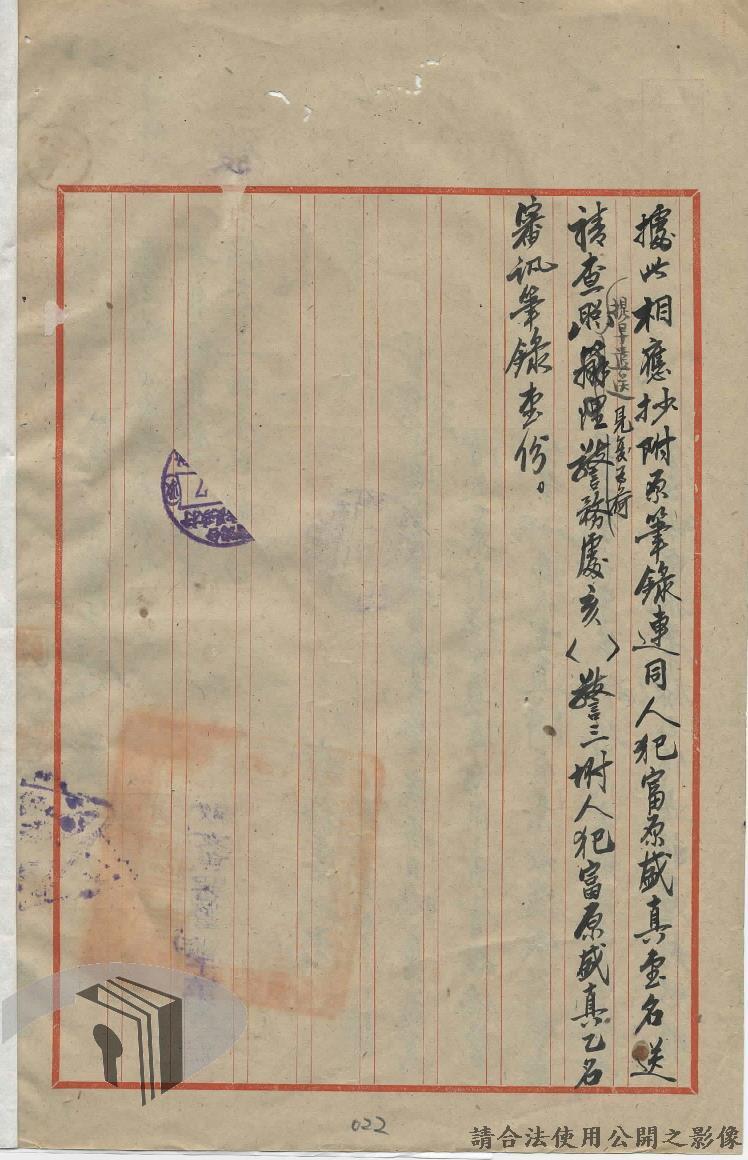 據此相應抄附原筆錄連同人犯富原盛真壹名送
請查照辦理見復為荷警務處亥〈 〉警三附人犯富原盛真乙名
提早遣送
審訊筆錄壹份。
022
請合法使用公開之影像